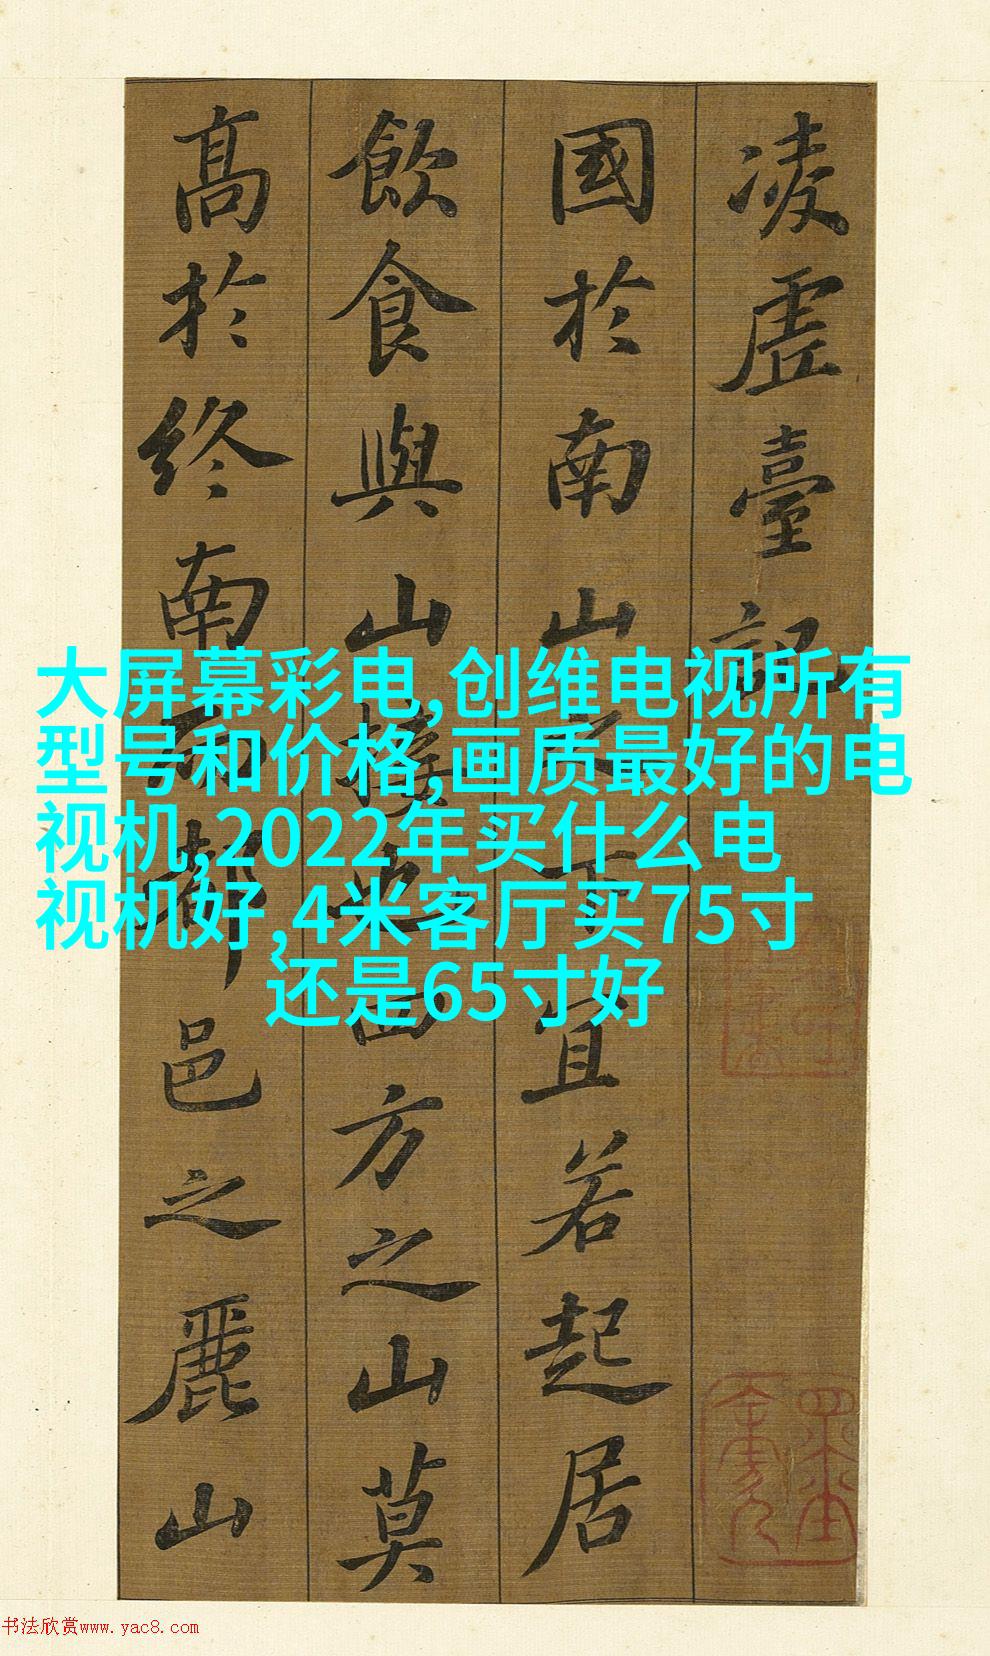 凌虚臺記
國於南山之下宜若起居
飲食與山接也四方之山莫
高於終南而都邑之麗山
大屏幕彩电,创维电视所有
型号和价格,画质最好的电
视机,2022年买什么电
视机好,4米客厅买75寸
还是65寸好
书法欣赏www.yac8.com